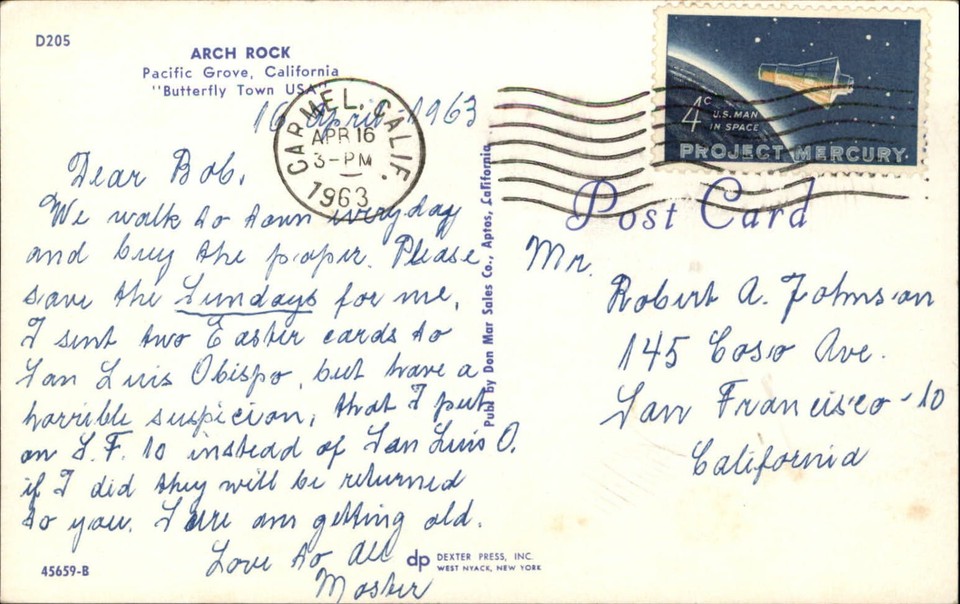 D205
ARCH ROCK
Pacific Grove, California
"Butterfly Town USA"
16 April, 1963
CARMEL, CALIF.
APR 16
3-PM
1963
4c
U.S. MAN
IN SPACE
PROJECT MERCURY
Post Card
Dear Bob,
We walk to town everyday
and buy the paper. Please
save the Sundays for me.
I sent two Easter cards to
San Luis Obispo, but have a
horrible suspicion, that I put
on S.F. 10 instead of San Luis O.
if I did they will be returned
to you. Sure am getting old.
Love to all
Mother
Publ by Don Mar Sales Co., Aptos, California
Mr.
Robert A. Johnson
145 Coso Ave.
San Francisco-10
California
45659-B
dp DEXTER PRESS, INC.
WEST NYACK, NEW YORK